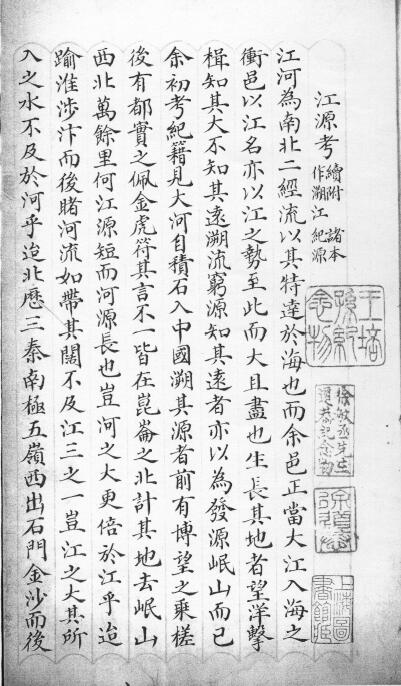 江源考 續附 諸本
作溯江紀源
江河為南北二經流以其特達於海也而余邑正當大江入海之
衝邑以江名亦以江之勢至此而大且盡也生長其地者望洋擊
楫知其大不知其遠溯流窮源知其遠者亦以為發源岷山而已
余初考紀籍見大河自積石入中國溯其源者前有博望之乘槎
後有都實之佩金虎符其言不一皆在崑崙之北計其地去岷山
西北萬餘里何江源短而河源長也豈河之大更倍於江乎迨
踰淮涉汴而後睹河流如帶其闊不及江三之一豈江之大其所
入之水不及於河乎迨北歷三秦南極五嶺西出石門金沙而後
王培
孫紀
念物
上海圖
書館藏